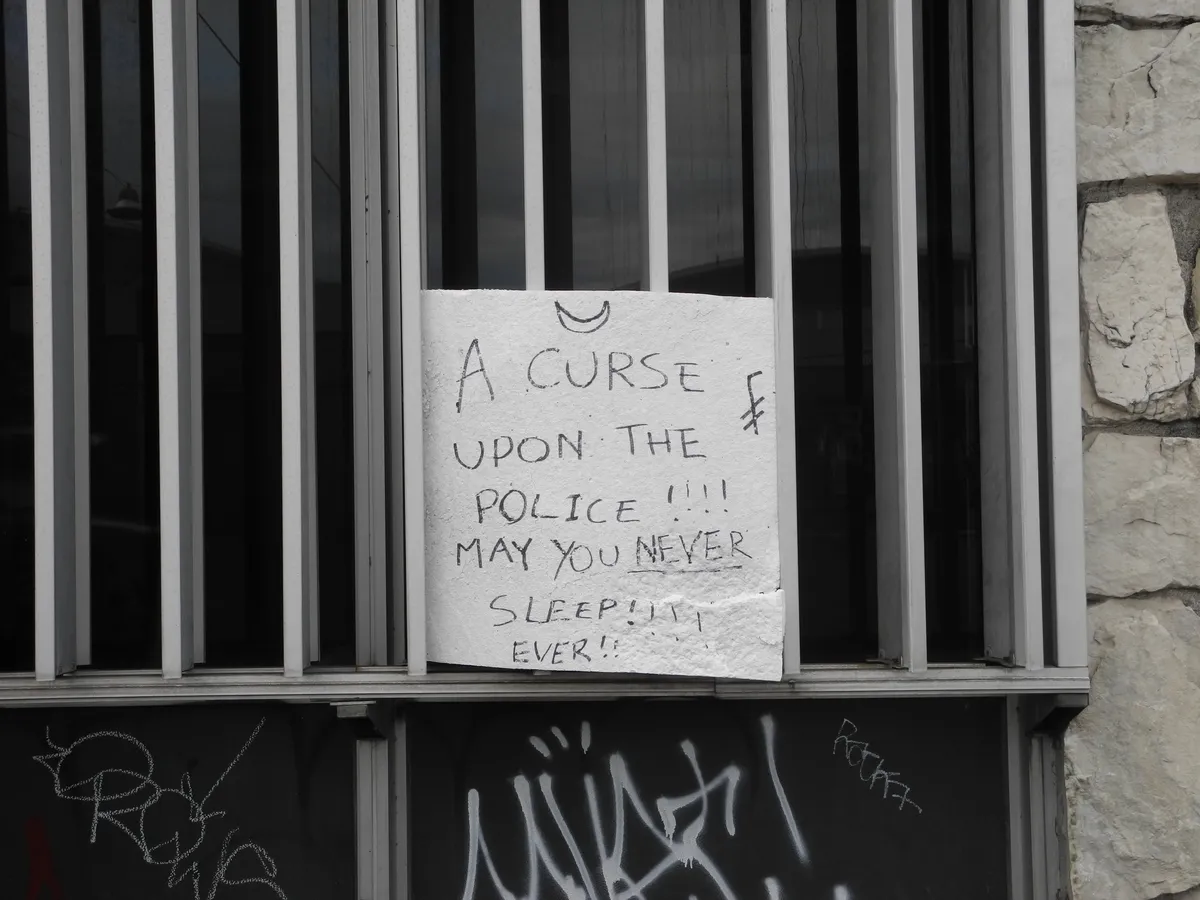 A CURSE
UPON THE
POLICE !!!!
MAY YOU NEVER
SLEEP!!!!
EVER!!